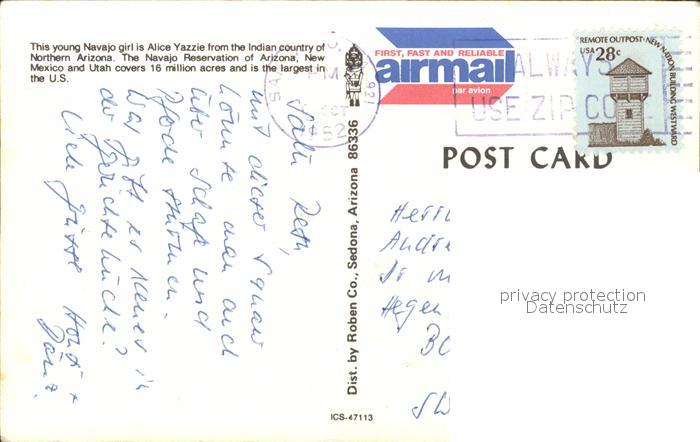 This young Navajo girl is Alice Yazzie from the Indian country of
Northern Arizona. The Navajo Reservation of Arizona, New
Mexico and Utah covers 16 million acres and is the largest in
the U.S.
FIRST, FAST AND RELIABLE
airmail
par avion
PM
OCT
1982
ALWAYS
USE ZIP CO
REMOTE OUTPOST · NEW NATION BUILDING WESTWARD
USA 28c
POST CARD
Salü
mit dieser Squaw
könnte man auch
über Schaf und
Pferde
Was gibt es Neues in
der Gerüchteküche?
Liebe Grüsse
Dist. by Roben Co., Sedona, Arizona 86336
Herrn
Andre
Hegen
privacy protection
Datenschutz
ICS-47113